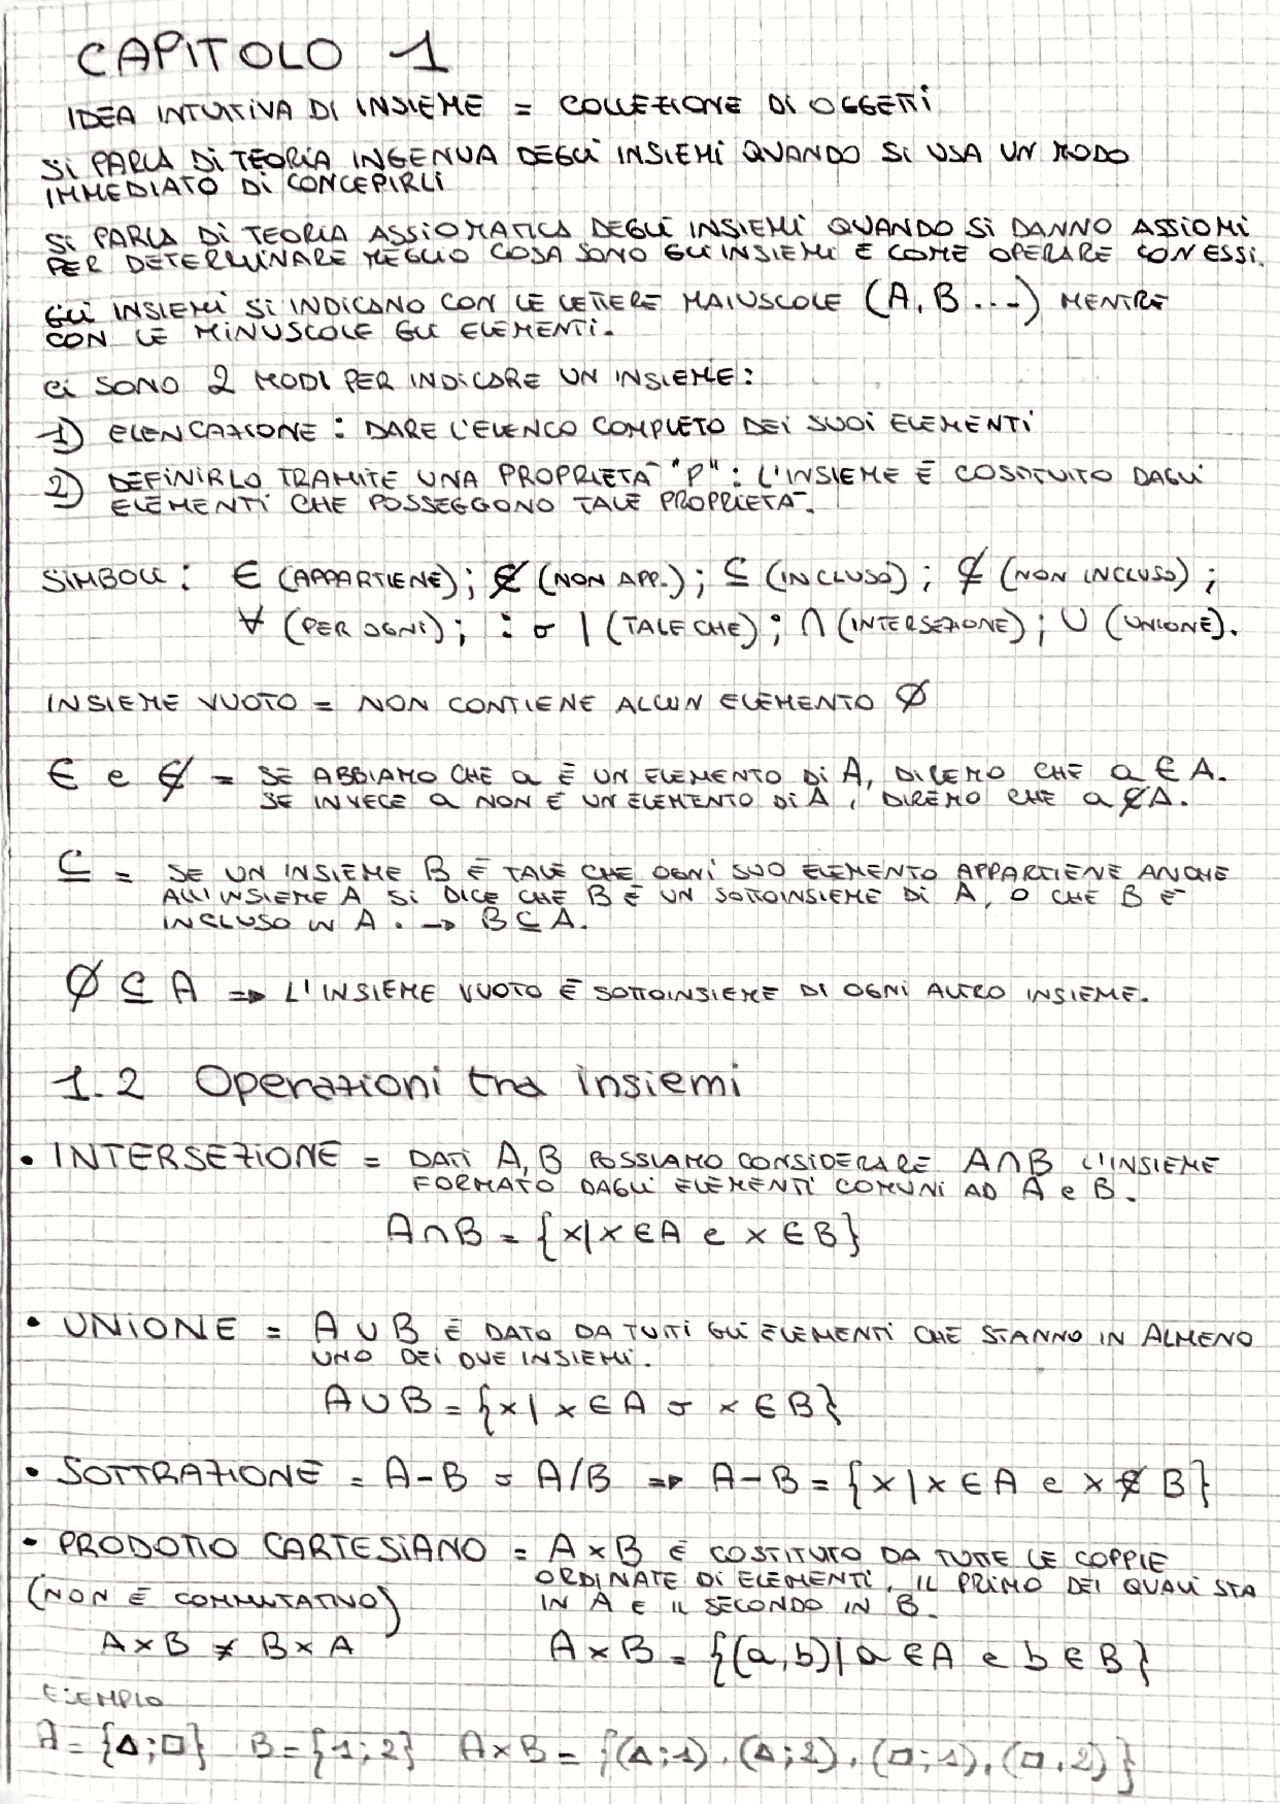 CAPITOLO 1
IDEA INTUITIVA DI INSIEME = COLLEZIONE DI OGGETTI
SI PARLA DI TEORIA INGENUA DEGLI INSIEMI QUANDO SI USA UN MODO
IMMEDIATO DI CONCEPIRLI
SI PARLA DI TEORIA ASSIOMATICA DEGLI INSIEMI QUANDO SI DANNO ASSIOMI
PER DETERMINARE MEGLIO COSA SONO GLI INSIEMI E COME OPERARE CON ESSI.
GLI INSIEMI SI INDICANO CON LE LETTERE MAIUSCOLE (A, B ...) MENTRE
CON LE MINUSCOLE GLI ELEMENTI.
CI SONO 2 MODI PER INDICARE UN INSIEME:
1) ELENCAZIONE: DARE L'ELENCO COMPLETO DEI SUOI ELEMENTI
2) DEFINIRLO TRAMITE UNA PROPRIETÀ "P": L'INSIEME È COSTITUITO DAGLI
ELEMENTI CHE POSSEGGONO TALE PROPRIETÀ.
SIMBOLI: ∈ (APPARTIENE); ∉ (NON APP.); ⊆ (INCLUSO); ⊈ (NON INCLUSO);
∀ (PER OGNI); : o | (TALE CHE); ∩ (INTERSEZIONE); ∪ (UNIONE).
INSIEME VUOTO = NON CONTIENE ALCUN ELEMENTO Ø
∈ e ∉ = SE ABBIAMO CHE a È UN ELEMENTO DI A, DIREMO CHE a ∈ A.
SE INVECE a NON È UN ELEMENTO DI A, DIREMO CHE a ∉ A.
⊆ = SE UN INSIEME B È TALE CHE OGNI SUO ELEMENTO APPARTIENE ANCHE
ALL'INSIEME A SI DICE CHE B È UN SOTTOINSIEME DI A, O CHE B È
INCLUSO IN A. → B ⊆ A.
Ø ⊆ A ⇒ L'INSIEME VUOTO È SOTTOINSIEME DI OGNI ALTRO INSIEME.
1.2 Operazioni tra insiemi
• INTERSEZIONE = DATI A, B POSSIAMO CONSIDERARE A∩B L'INSIEME
FORMATO DAGLI ELEMENTI COMUNI AD A e B.
A∩B = {x| x ∈ A e x ∈ B}
• UNIONE = A ∪ B È DATO DA TUTTI GLI ELEMENTI CHE STANNO IN ALMENO
UNO DEI DUE INSIEMI.
A∪B = {x| x ∈ A o x ∈ B}
• SOTTRAZIONE = A-B o A/B ⇒ A-B = {x | x ∈ A e x ∉ B}
• PRODOTTO CARTESIANO = A×B È COSTITUTO DA TUTTE LE COPPIE
ORDINATE DI ELEMENTI, IL PRIMO DEI QUALI STA
(NON È COMMUTATIVO) IN A E IL SECONDO IN B.
A×B ≠ B×A A×B = {(a,b)| a ∈ A e b ∈ B}
ESEMPIO
A = {△;□} B = {1;2} A×B = {(△;1), (△;2), (□;1), (□,2)}